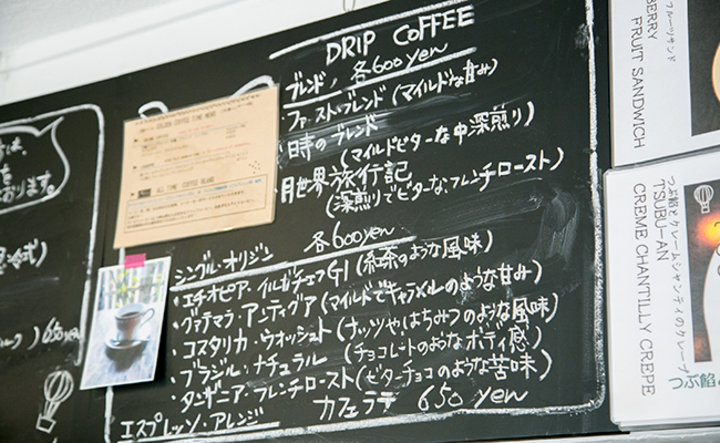 DRIP COFFEE
ブレンド 各600yen
・ファーストブレンド (マイルドな甘み)
・時のブレンド
(マイルドビターな中深煎り)
・月世界旅行記
(深煎りでビターな、フレンチロースト)
シングル・オリジン 各600yen
・エチオピア・イルガチェフG1 (紅茶のような風味)
・グァテマラ・アンティグア (マイルドでキャラメルのような甘み)
・コスタリカ・ウォッシュト (ナッツやはちみつのような風味)
・ブラジル・ナチュラル (チョコレートのようなボディ感)
・タンザニア・フレンチロースト (ビターチョコのような苦味)
エスプレッソ・アレンジ
カフェラテ 650yen
おります。
650yen
ALL TIME COFFEE BEANS
フルーツサンド
BERRY
FRUIT SANDWICH
つぶ餡とクレームシャンティのクレープ
TSUBU-AN
CREME CHANTILLY CREPE
つぶ餡